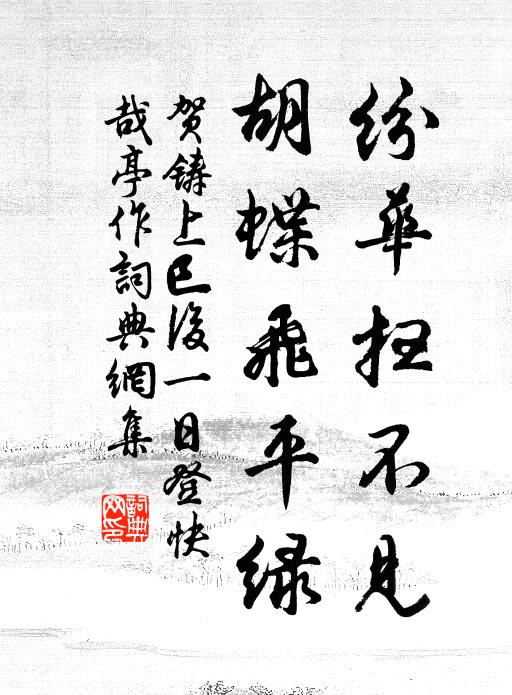 纷华扫不见
胡蝶飞平绿
贺铸上巳後一日登快
哉亭作詞典網集
詞典网印